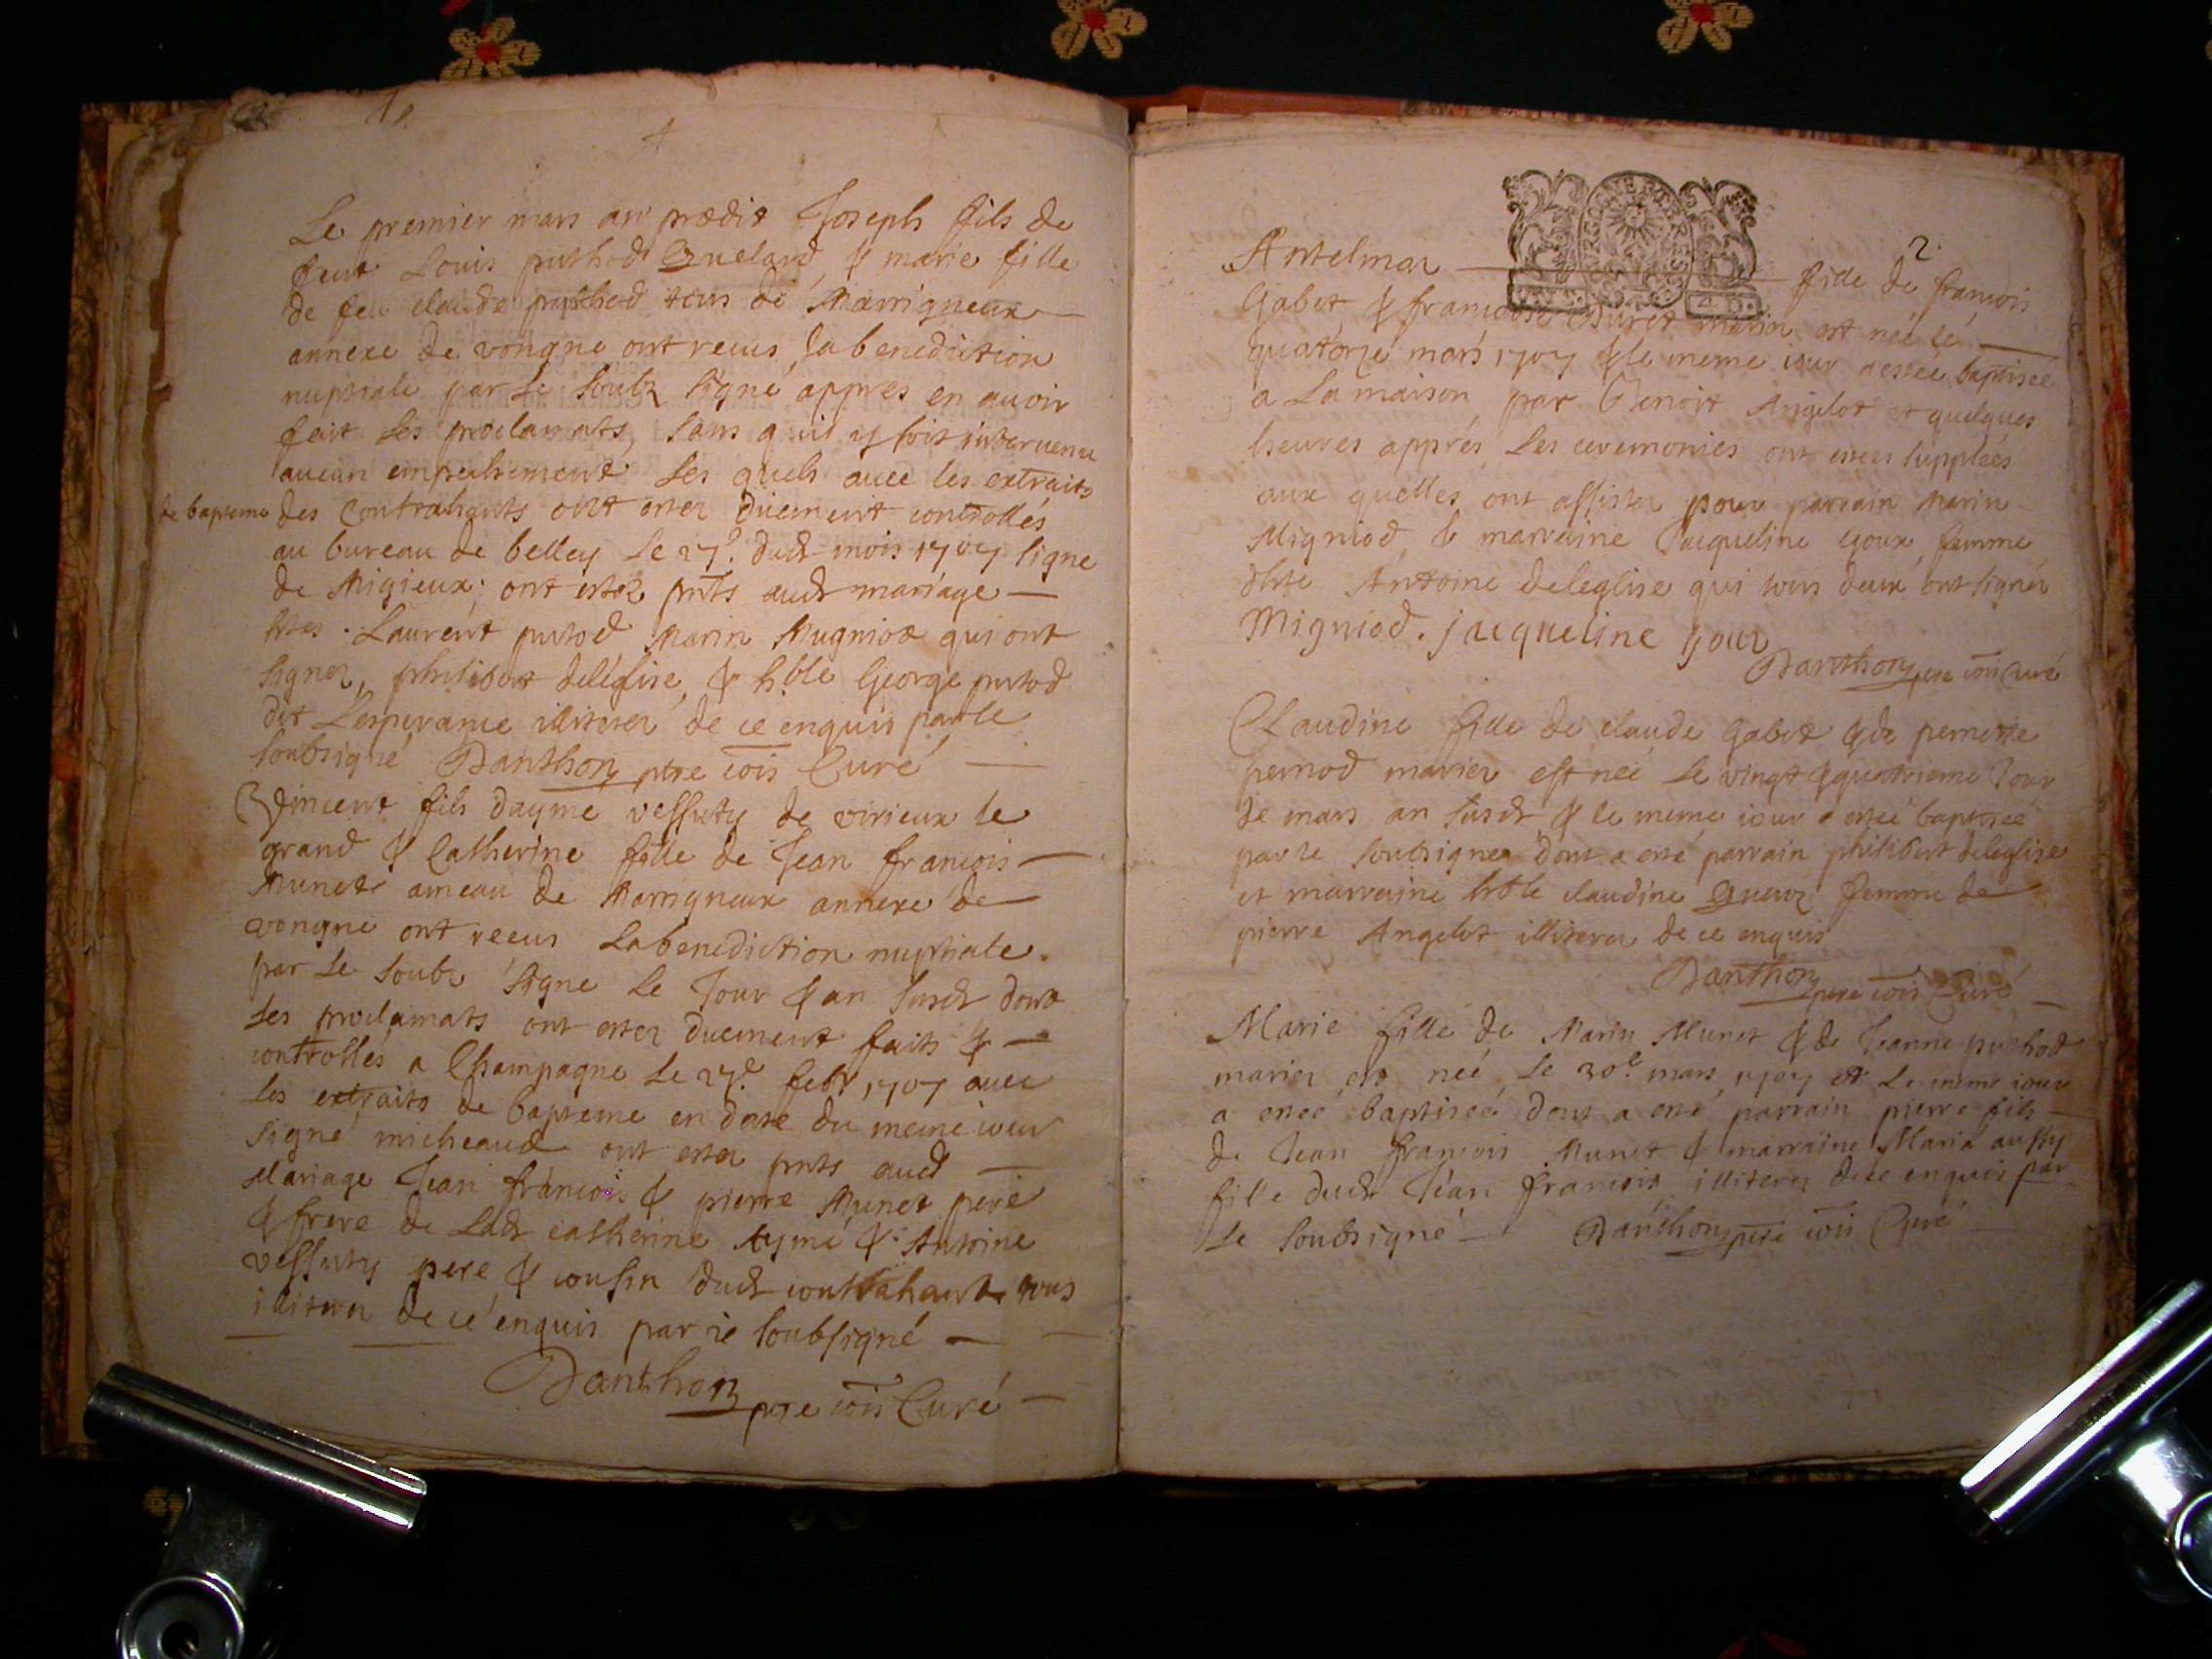 Le premier mars an prædit Joseph fils de
feut Louis puthod Guelard & marie fille
de feu claude puthod tous de Marrigneux
annexe de vongne ont receus la benediction
nuptiale par le soubz signé appres en avoir
fait les proclamats, sans quil y soit intervenu
aucun empeschement les quels avec les extraits
de bapteme des contrahants ont estez duement controllés
au bureau de belley le 27e. dud mois 1707 signe
de Migieux; ont estez pnts aud mariage
Laurent putod Marin Mugniod qui ont
signez, philibert deleglise, & h.ble George putod
dit Lesperance illiterez de ce enquis par le
soubsigné Danthon ptre cois Curé
Vincent fils dayme vessuty de virieux le
grand & Catherine fille de Jean francois
Munet ameau de Marrigneux annexe de
vongne ont receus La benediction nuptiale
par le soubz signe le Jour & an susd dont
les proclamats ont estez duement faits &
controllés a Champagne le 27e febr 1707 avec
les extraits de bapteme en date du meme iour
signé micheaud ont estez pnts aud
Mariage Jean francois & pierre Munet pere
& frere de Lad catherine Aymé & Antoine
vessuty pere & cousin dud contrahant tous
illiterez de ce enquis par ie soubsigné
Danthon ptre cois Curé
2.
Antelmaz fille de francois
Gabet & francoise mariez est neé le
quatorze mars 1707 & le meme iour a esteé baptisée
a La maison par Benoit Angelot et quelques
heures apprés les ceremonies ont esteés suppleés
aux quelles ont assistez pour parrain Marin
Migniod & marraine Jacqueline gour femme
Antoine deleglise qui tous deux ont signez
Migniod. jacqueline gour
Danthon ptre cois Curé
Claudine fille de claude Gabet & de pernette
pernod mariez est neé le vingt & quatrieme Jour
de mars an susd & le meme iour a esteé baptiseé
par le soubsignez dont a esté parrain philibert deleglise
et marraine claudine femme de
pierre Angelot illiterez de ce enquis
Danthon ptre cois Curé
Marie fille de Marin Munet & de Jeanne puthod
mariez est neé le 30e. mars 1707 et le meme iour
a esteé baptiseé dont a esté parrain pierre fils
de Jean francois Munet & marraine Maria aussy
fille dud Jean francois illiterez de ce enquis par
le soubsigné Danthon ptre cois Curé